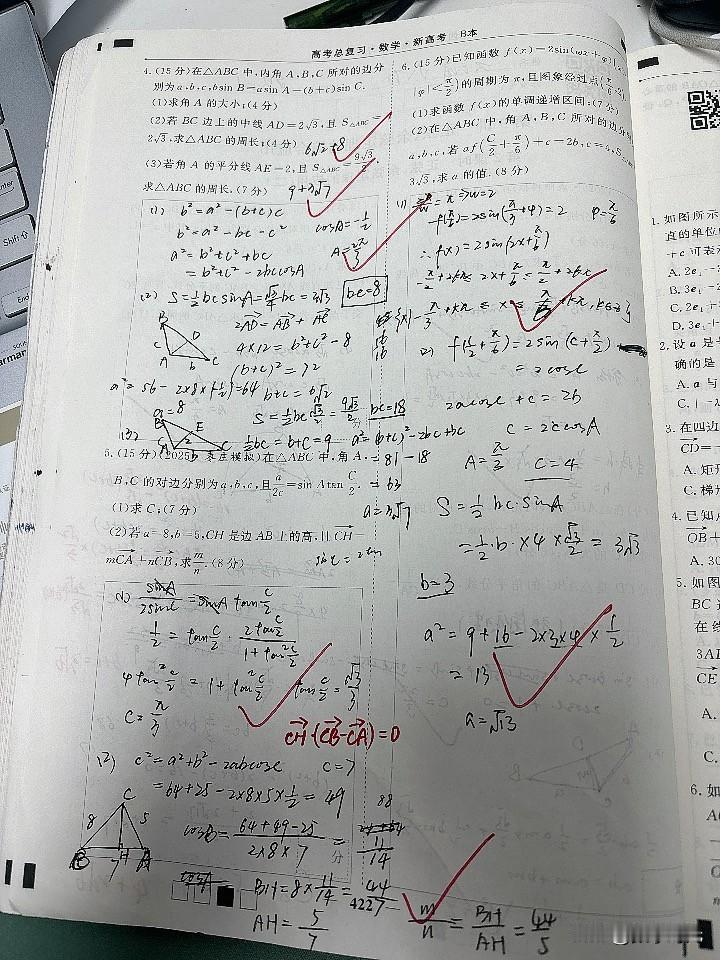 高考总复习·数学·新高考 B本
4.(15分)在△ABC中,内角A,B,C所对的边分
别为a,b,c,bsin B=asin A-(b+c)sin C.
(1)求角A的大小;(4分)
(2)若BC边上的中线AD=2√3,且S△ABC=
2√3,求△ABC的周长;(4分)
6√2+8
(3)若角A的平分线AE=2,且S△ABC=9√3/2,
求△ABC的周长.(7分)
9+3√7
(1) b²=a²-(b+c)c
b²=a²-bc-c²
cosA=-1/2
a²=b²+c²+bc
A=2π/3
=b²+c²-2bccosA
(2) S=1/2bcsinA=√3/4bc=2√3
bc=8
2AD=AB+AC
4×12=b²+c²-8
(b+c)²=72
b+c=6√2
a²=56-2×8×(-1/2)=64
a=8
S=1/2bc√3/2=9√3/2
bc=18
(3)
1/2bc=b+c=9 a²=(b+c)²-2bc+bc
=81-18
=63
a=3√7
B D A C c b
B E A C 2
5.(15分)(2025·枣庄模拟)在△ABC中,角A,
B,C的对边分别为a,b,c,且a/2c=sin Atan C/2.
(1)求C;(7分)
(2)若a=8,b=5,CH是边AB上的高,且CH=
mCA+nCB,求m/n.(8分)
(1) sinA/2sinC=sinA tanC/2
1/2=tanC/2·2tanC/2/1+tan²C/2
4tan²C/2=1+tan²C/2 tanC/2=√3/3
C=π/3
CH·(CB-CA)=0
(2) c²=a²+b²-2abcosC c=7
=64+25-2×8×5×1/2=49
C 8 5 B H A 7
cosB=64+49-25/2×8×7=
88
11/14
BH=8×11/14=44/7
AH=5/7
m/n=BH/AH=44/5
422
6.(15分)已知函数f(x)=2sin(ωx+φ)
|φ|<π/2)的周期为π,且图象过点(π/6,2).
(1)求函数f(x)的单调递增区间;(7分)
(2)在△ABC中,角A,B,C所对的边分别
a,b,c,若af(C/2+π/6)+c=2b,c=4,S
3√3,求a的值.(8分)
(1) =π⇒w=2
f(π/6)=2sin(π/3+φ)=2 φ=π/6
∴f(x)=2sin(2x+π/6)
-π/2+2kπ≤2x+π/6≤π/2+2kπ
{x|-π/3+kπ≤x≤π/6+kπ,k∈Z}
(2) f(C/2+π/6)=2sin(C+π/2)
=2cosC
2acosC+c=2b
c=2ccosA
A=π/3 c=4
S=1/2bc·sinA
=1/2·b×4×√3/2=3√3
b=3
a²=9+16-2×3×4×1/2
=13
a=√13
1.如图所示
直的单位向
+c可表示
A.2e
B.3e
C.2e
D.3e
2.设a是
确的是
A.a与
3.在四边
CD=
A.矩形
C.梯形
4.已知
OB+
A.30
5.如图
BC
在线
3AI
CE
A.
C.
6.如